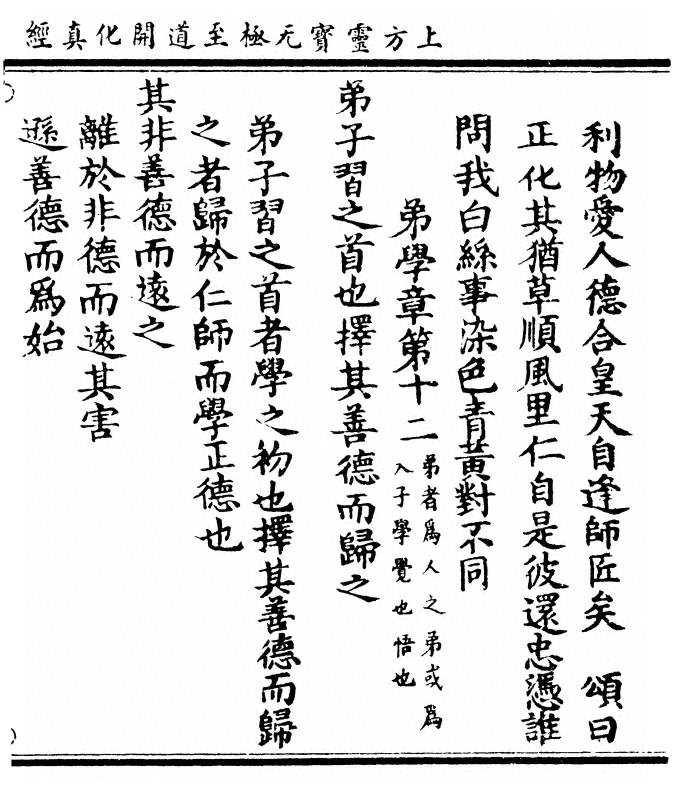 上方靈寶无極至道開化真經
利物愛人德合皇天自逢師匠矣　頌曰
正化其猶草順風里仁自是彼還忠憑誰
問我白絲事染色青黃對不同
弟學章第十二
弟者爲人之弟或爲
人子學覺也悟也
弟子習之首也擇其善德而歸之
弟子習之首者學之初也擇其善德而歸
之者歸於仁師而學正德也
其非善德而遠之
離於非德而遠其害
遜善德而爲始